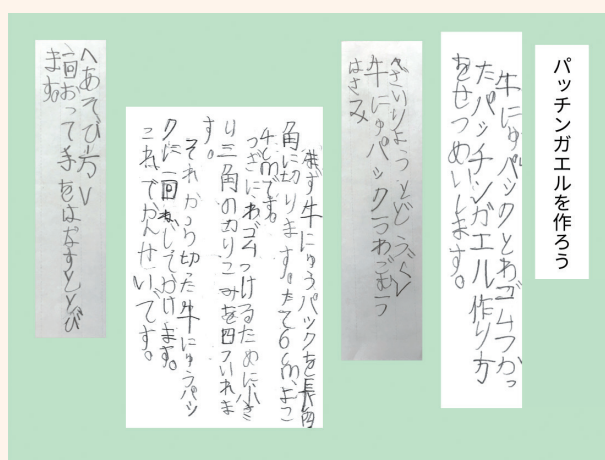 パッチンガエルを作ろう
牛にゅパックとわゴムつかっ
たパッチンガエル作り方
をせつめいします。
<ざいりょうとどうぐ>
牛にゅパック一つわごむ一つ
はさみ
まず牛にゅうパックを長四
角に切ります。たて6cmよこ
4cmです。
つぎにわゴムつけるために小さ
い三角の切りこみを四ついれま
す。
それから切った牛にゅうパッ
クに一回ねじてかけます。
これでかんせいです。
<あそび方>
一回おって手をはなすととび
ます。